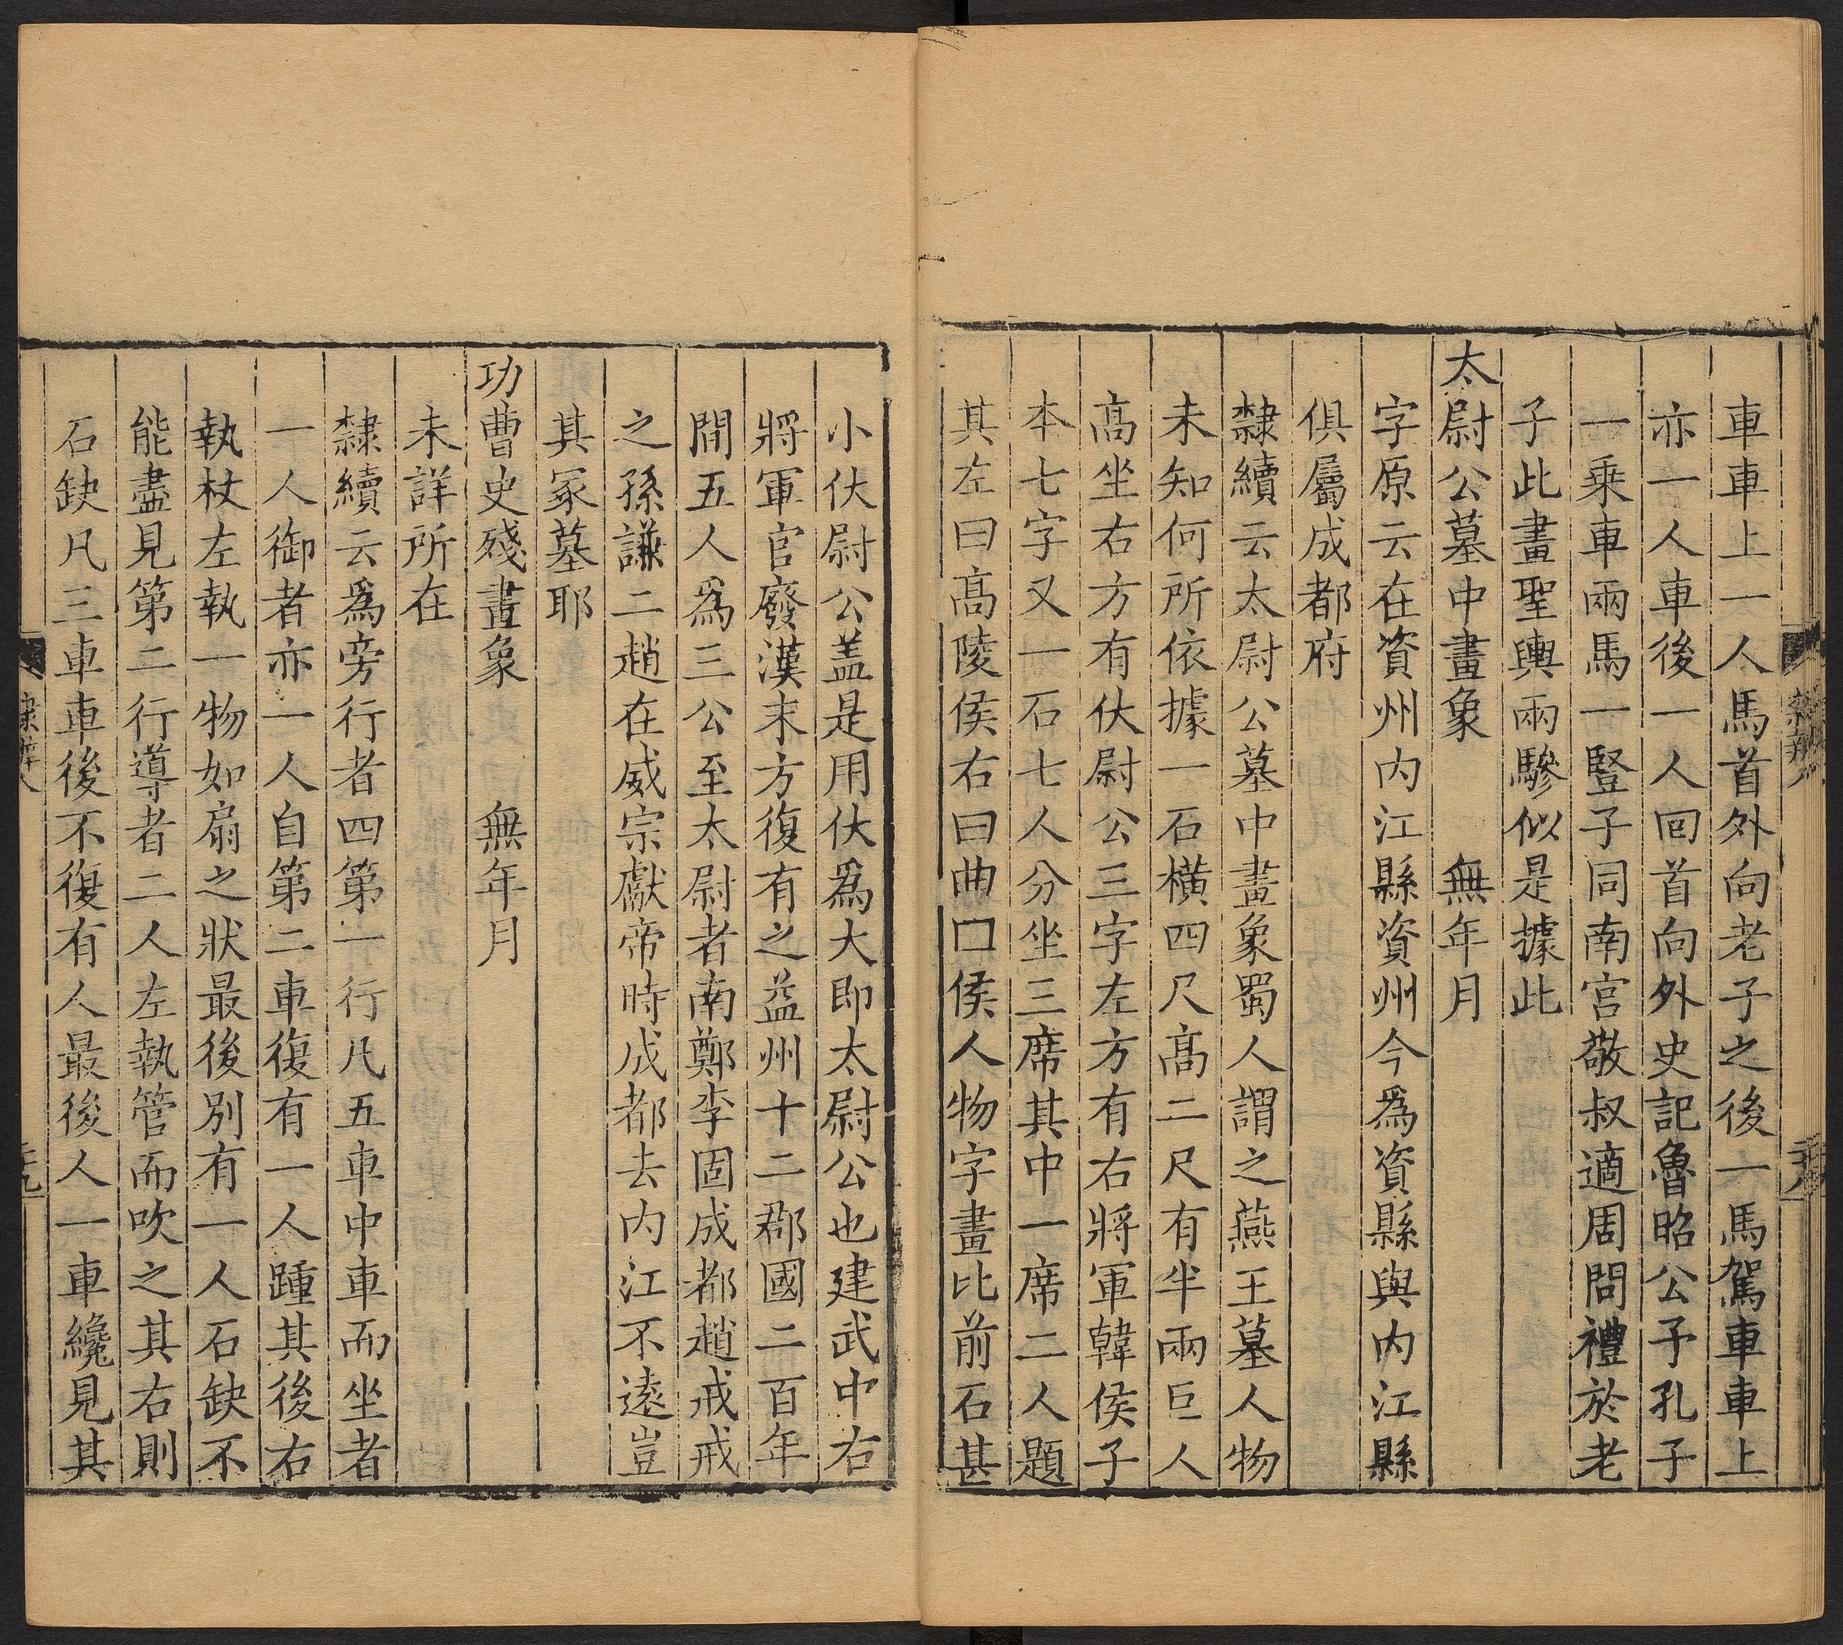 車車上一人馬首外向老子之後一馬駕車車上
亦一人車後一人回首向外史記魯昭公予孔子
一乗車兩馬一豎子同南宮敬叔適周問禮於老
子此畫聖輿兩驂似是據此
太尉公墓中畫象　無年月
字原云在資州內江縣資州今爲資縣與內江縣
俱屬成都府
隸續云太尉公墓中畫象蜀人謂之燕王墓人物
未知何所依據一石橫四尺髙二尺有半兩巨人
髙坐右方有伏尉公三字左方有右將軍韓侯子
本七字又一石七人分坐三席其中一席二人題
其左曰髙陵侯右曰曲口侯人物字畫比前石甚
小伏尉公盖是用伏爲大即太尉公也建武中右
將軍官廢漢末方復有之益州十二郡國二百年
閒五人爲三公至太尉者南鄭李固成都趙戒戒
之孫謙二趙在威宗獻帝時成都去內江不遠豈
其冢墓耶
功曹史殘畫象　無年月
未詳所在
隸續云爲旁行者四第一行凡五車中車而坐者
一人御者亦一人自第二車復有一人踵其後右
執杖左執一物如扇之狀最後別有一人石缺不
能盡見第二行導者二人左執管而吹之其右則
石缺凡三車車後不復有人最後人一車纔見其